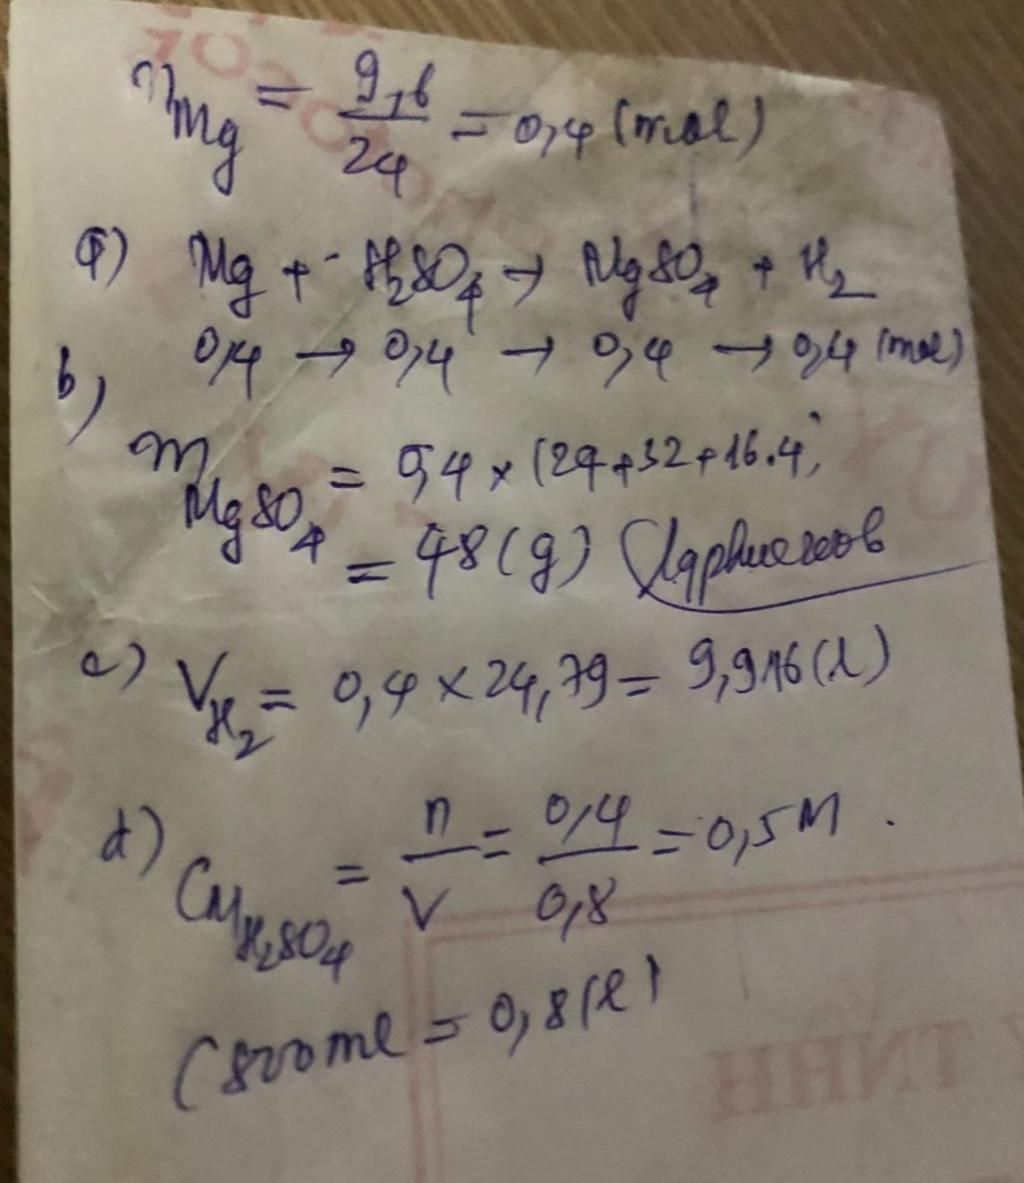 nMg = 9,6/24 = 0,4 (mol)
a) Mg + H2SO4 → MgSO4 + H2
b) 0,4 → 0,4 → 0,4 → 0,4 (mol)
mMgSO4 = 0,4 × (24+32+16.4)
= 48 (g)
c) VH2 = 0,4 × 24,79 = 9,916 (l)
d) CMH2SO4 = n/V = 0,4/0,8 = 0,5M.
(800ml = 0,8(l)
TNHH